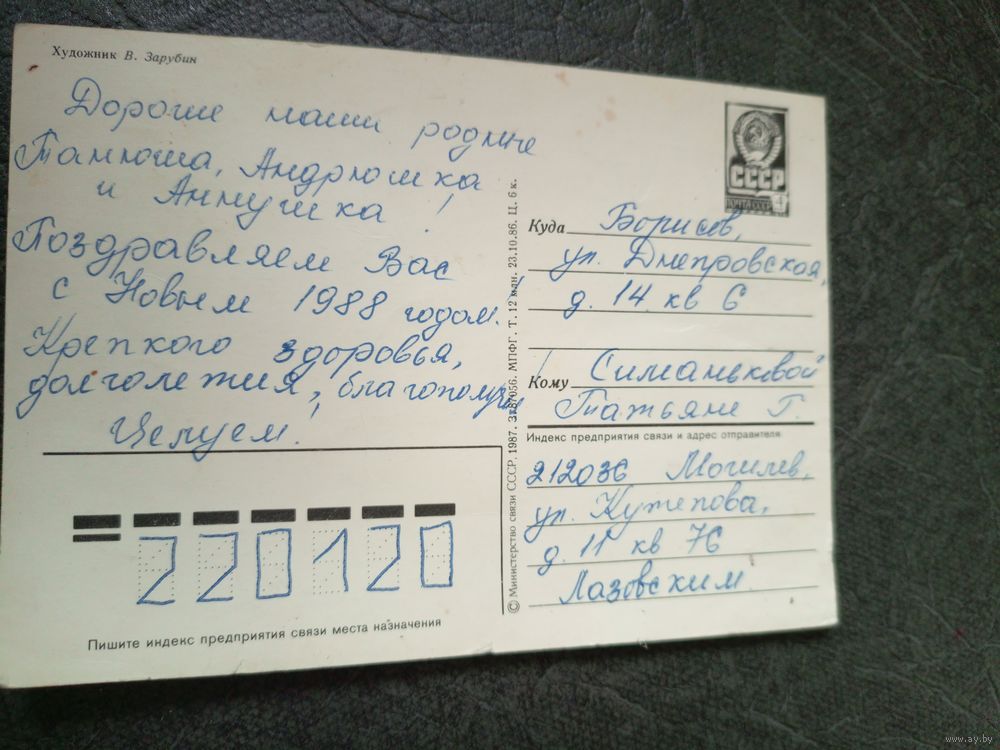 Художник В. Зарубин
Дорогие наши родные
Танюша, Андрюшка
и Аннушка!
Поздравляем Вас
с Новым 1988 годом!
Крепкого здоровья,
долголетия, благополучия!
Целуем!
Пишите индекс предприятия связи места назначения
220120
© Министерство связи СССР, 1987. МПФГ. Т. 12 млн. 23.10.86. Ц. 6 к.
СССР
ПОЧТА СССР 4
Куда Борисов,
ул. Днепровская,
д. 14 кв 6
Кому Симаньковой
Татьяне Г.
Индекс предприятия связи и адрес отправителя
212036 Могилев,
ул. Кутепова,
д. 11 кв 76
Лазовским
www.ay.by